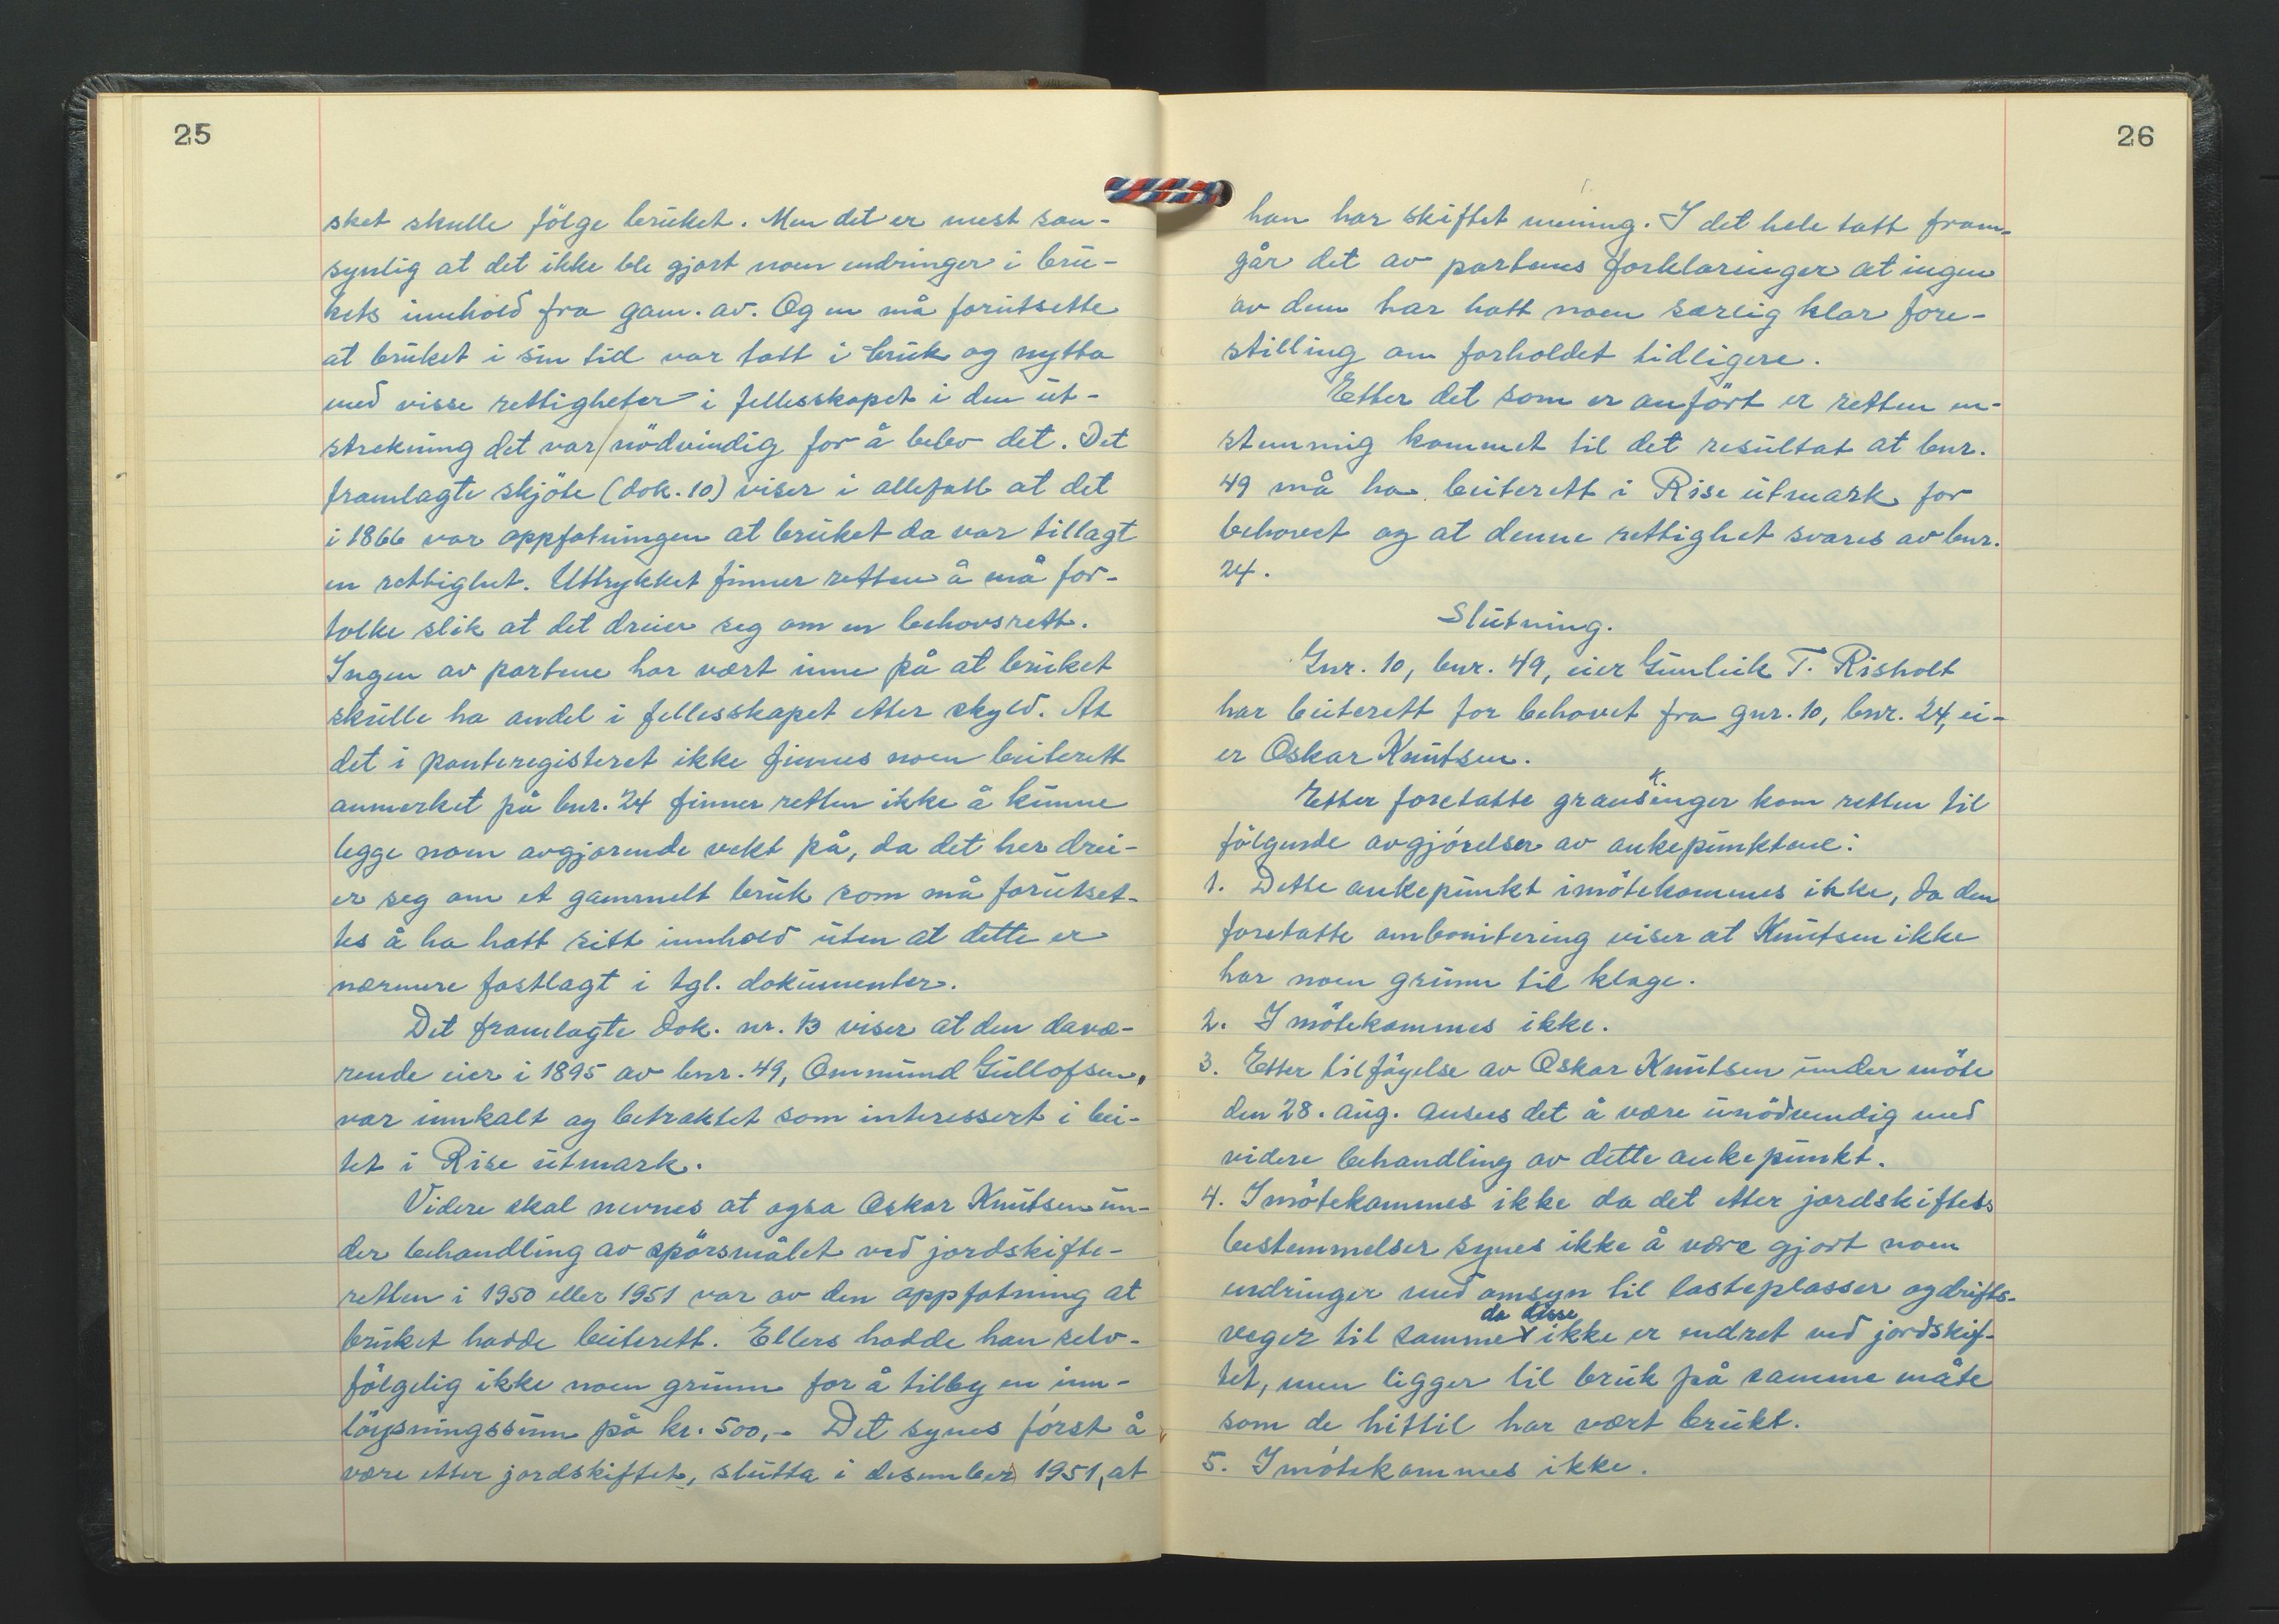 25
sket skulle følge bruket. Men det er mest san-
synlig at det ikke ble gjort noen endringer i bru-
kets innhold fra gam. av. Og en må forutsette
at bruket i sin tid var tatt i bruk og nytta
med visse rettigheter i fellesskapet i den ut-
strekning det var nödvendig for å belev det. Det
framlagte skjöte (dok. 10) viser i allefall at det
i 1866 var oppfatningen at bruket da var tillagt
en rettighet. Uttrykket finner retten å må for-
tolke slik at det dreier seg om en behovsrett.
Ingen av partene har vært inne på at bruket
skulle ha andel i fellesskapet etter skyld. At
det i panteregisteret ikke finnes noen beiterett
anmerket på bnr. 24 finner retten ikke å kunne
legge noen avgjørende vekt på, da det her drei-
er seg om et gammelt bruk som må forutset-
tes å ha hatt sitt innhold uten at dette er
nærmere fastlagt i tgl. dokumenter.
Det framlagte dok. nr. 13 viser at den davæ-
rende eier i 1895 av bnr. 49, Ommund Gullofsen,
var innkalt og betraktet som interessert i bei-
tet i Rise utmark.
Videre skal nevnes at ogsa Oskar Knutsen un-
der behandling av spörsmålet ved jordskifte-
retten i 1950 eller 1951 var av den oppfatning at
bruket hadde beiterett. Ellers hadde han selv-
fölgelig ikke noen grunn for å tilby en inn-
löysningssum på kr. 500,- Det synes först å
være etter jordskiftet, slutta i desember 1951, at
26
han har skiftet mening. I det hele tatt fram-
går det av partenes forklaringer at ingen
av dem har hatt noen særlig klar fore-
stilling om forholdet tidligere.
Etter det som er anfört er retten en-
stemmig kommet til det resultat at bnr.
49 må ha beiterett i Rise utmark for
behovet og at denne rettighet svares av bnr.
24.
Slutning.
Gnr. 10, bnr. 49, eier Gunleik T. Risholt
har beiterett for behovet fra gnr. 10, bnr. 24, ei-
er Oskar Knutsen.
Etter foretatte granskinger kom retten til
fölgende avgjörelser av ankepunktene:
1. Dette ankepunkt imötekommes ikke, da den
foretatte ombonitering viser at Knutsen ikke
har noen grunn til klage.
2. Imötekommes ikke.
3. Etter tilföyelse av Oskar Knutsen under möte
den 28. aug. anses det å være unödvendig med
videre behandling av dette ankepunkt.
4. Imötekommes ikke da det etter jordskiftets
bestemmelser synes ikke å være gjort noen
endringer med omsyn til lasteplasser og drifts-
veger til samme da disse ikke er endret ved jordskif-
tet, men ligger til bruk på samme måte
som de hittil har vært brukt.
5. Imötekommes ikke.